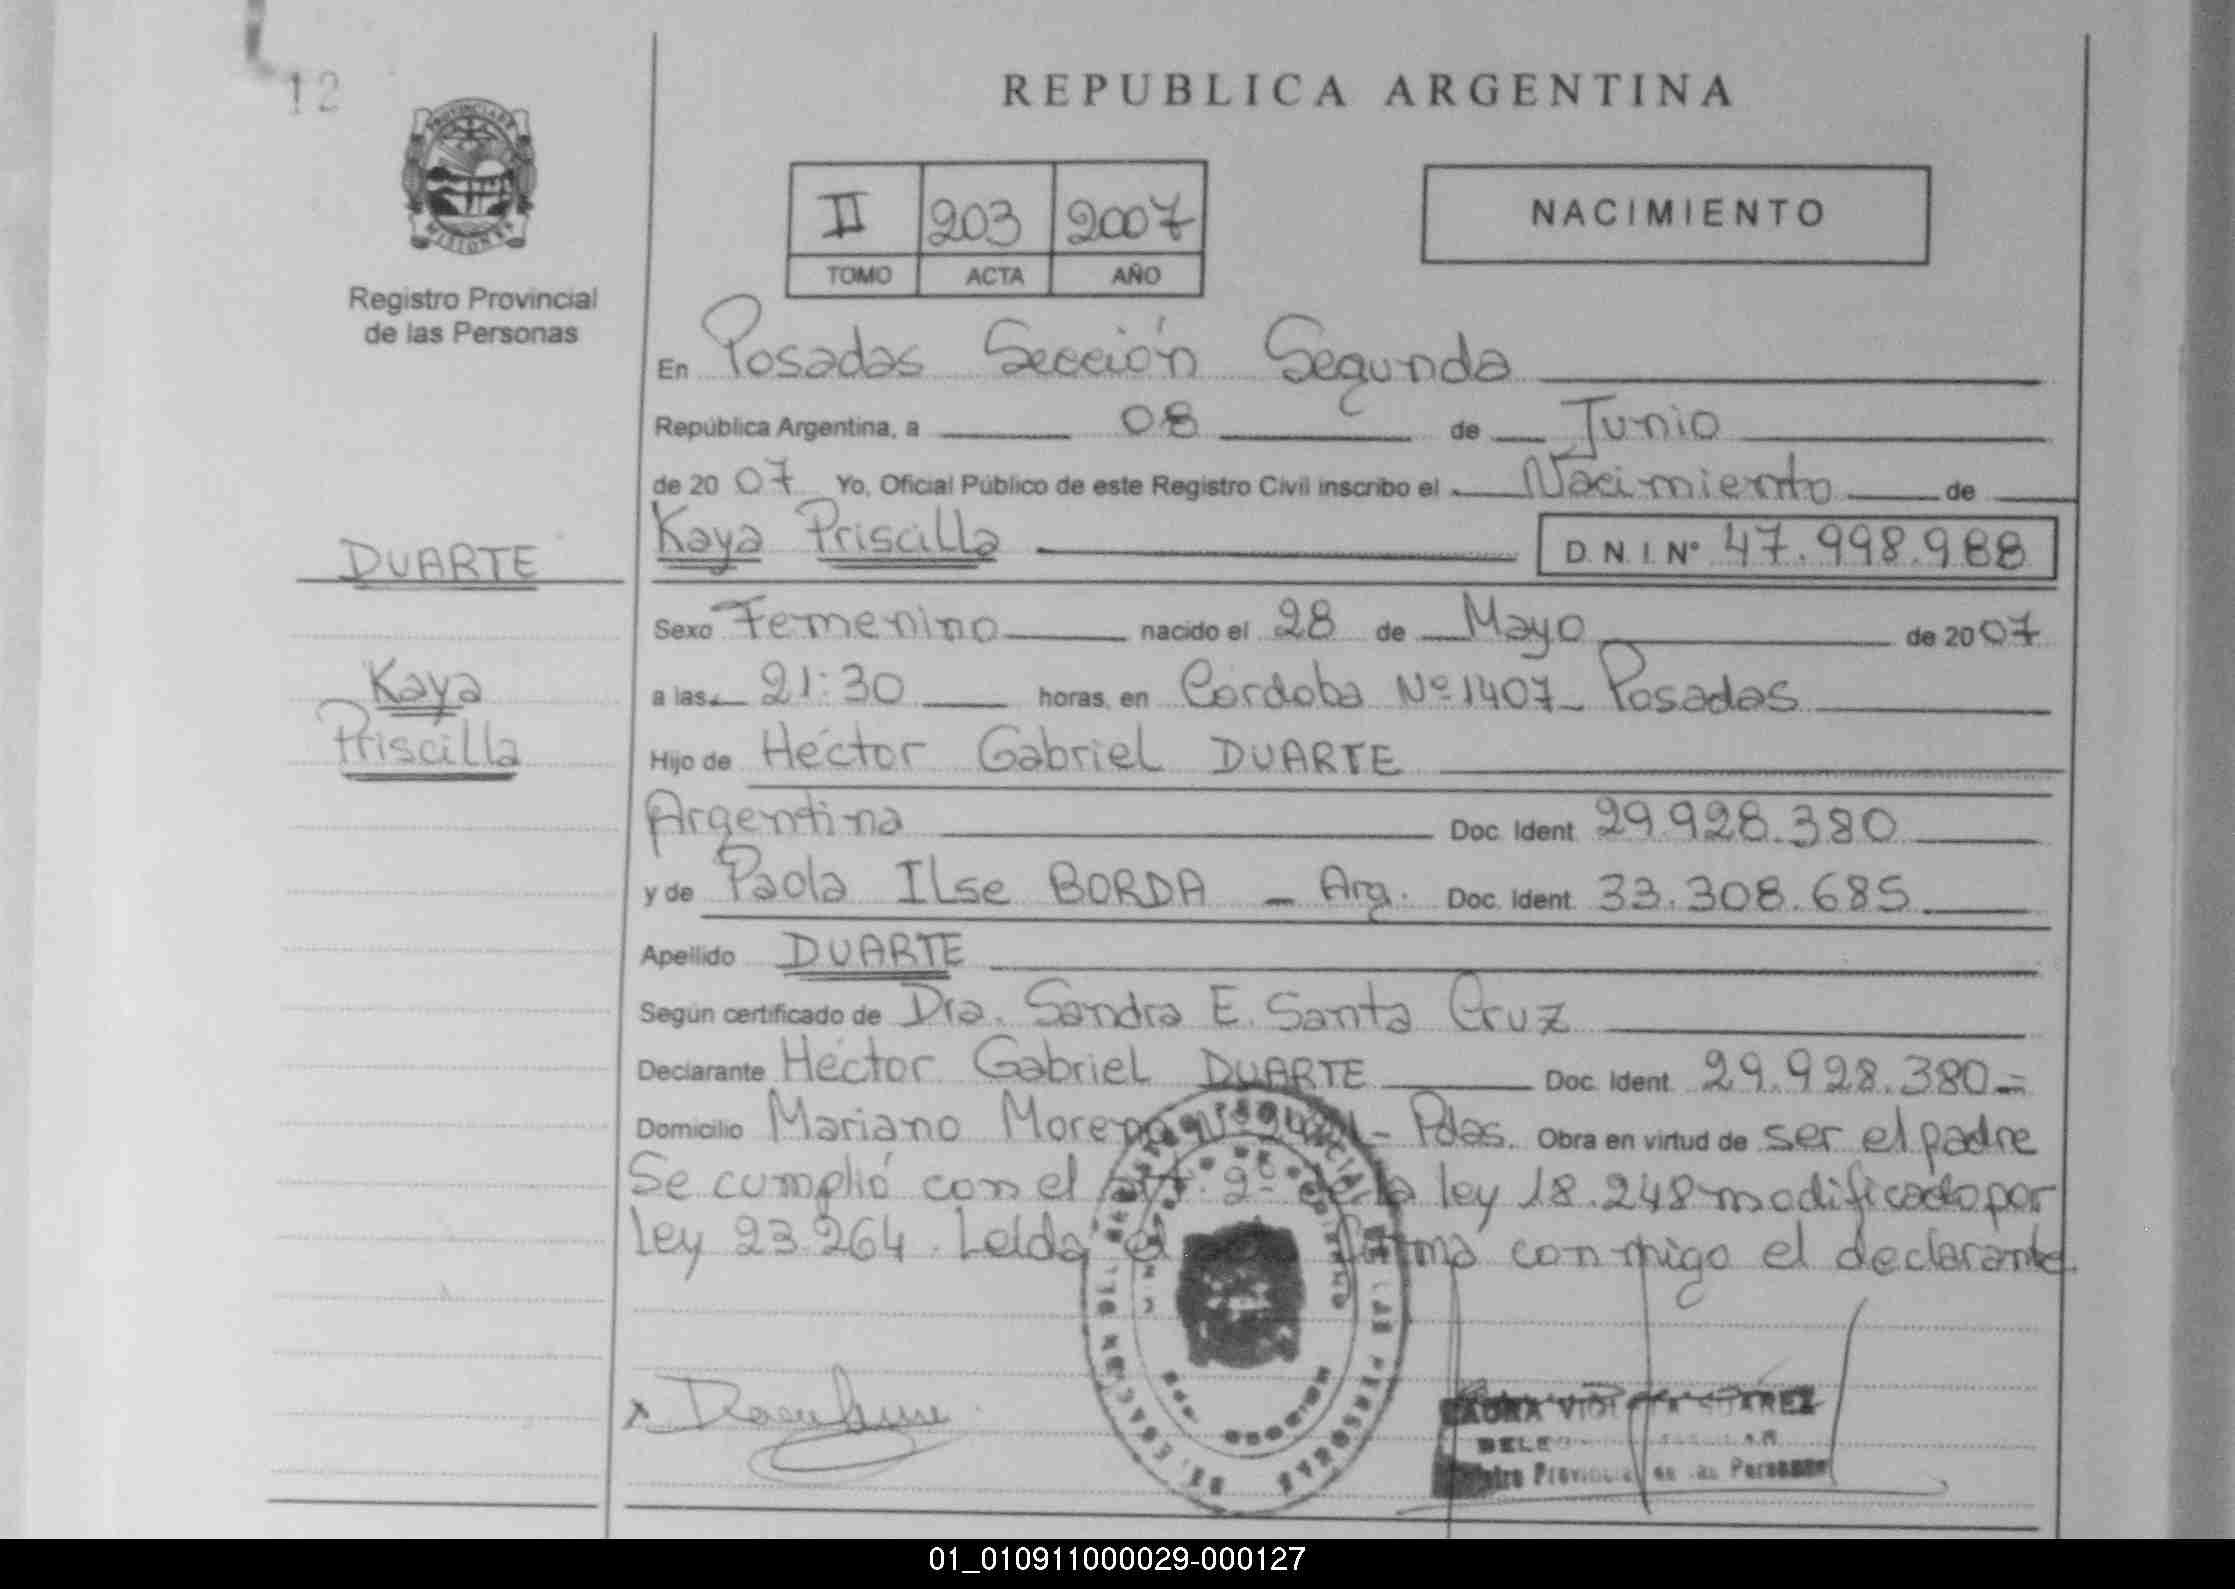 12
REPUBLICA ARGENTINA
PROVINCIA DE
MISIONES
II 203 2007
TOMO ACTA AÑO
NACIMIENTO
Registro Provincial
de las Personas
En Posadas Sección Segunda
República Argentina, a 08 de Junio
de 20 07 Yo, Oficial Público de este Registro Civil inscribo el Nacimiento de
DUARTE
Kaya Priscilla D.N.I. Nº 47.998.988
Sexo Femenino nacido el 28 de Mayo de 20 07
Kaya
Priscilla
a las 21:30 horas, en Córdoba Nº 1407 - Posadas
Hijo de Héctor Gabriel DUARTE
Argentina Doc. Ident. 29.928.380
y de Paola Ilse BORDA - Arg. Doc. Ident. 33.308.685
Apellido DUARTE
Según certificado de Dra. Sandra E. Santa Cruz
Declarante Héctor Gabriel DUARTE Doc. Ident. 29.928.380=
Domicilio Mariano Moreno - Pdas. Obra en virtud de ser el padre
Se cumplió con el art. 2º de la ley 18.248 modificado por
ley 23.264. Leída el firma conmigo el declarante
LAURA VIOLETA SUAREZ
Registro Provincial de las Personas
01_010911000029-000127